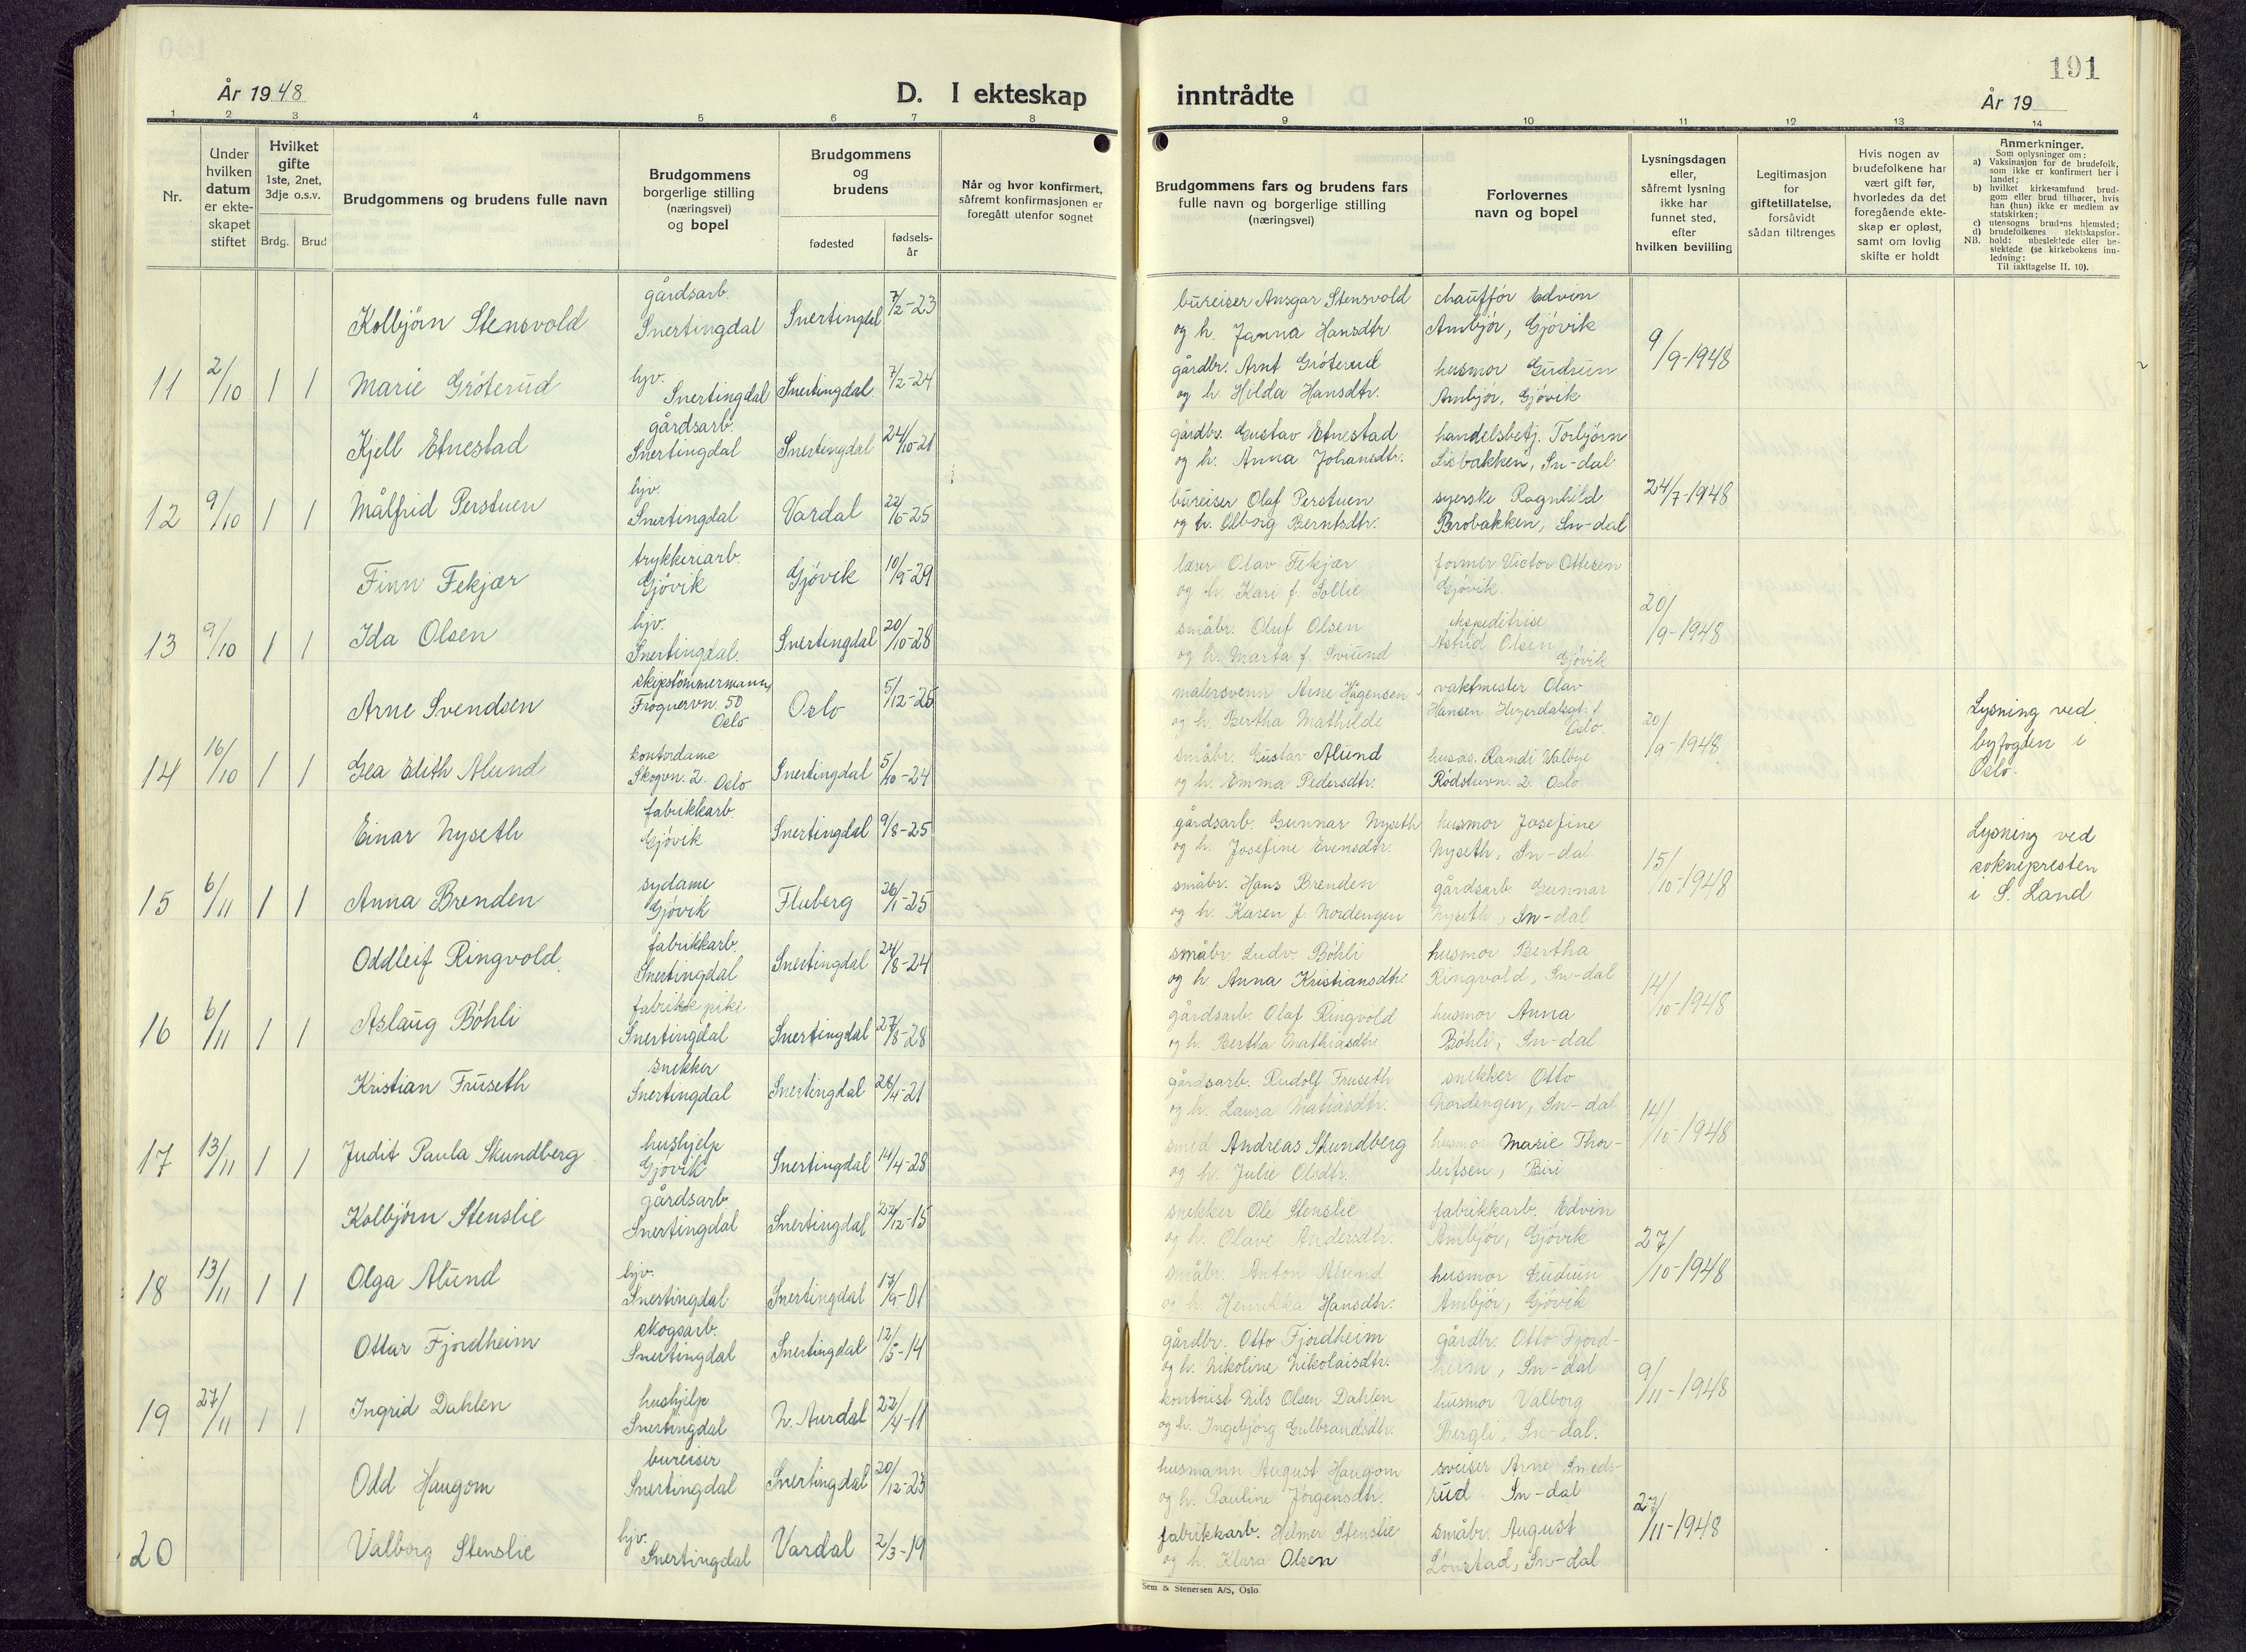 År 1948
D. I ekteskap
inntrådte
191
År 19
1 2 3 4 5 6 7 8 9 10 11 12 13 14
Nr.
Under
hvilken
datum
er ekte-
skapet
stiftet
Hvilket
gifte
1ste, 2net,
3dje o.s.v.
Brdg. Brud
Brudgommens og brudens fulle navn
Brudgommens
borgerlige stilling
(næringsvei)
og bopel
Brudgommens
og
brudens
fødested
fødsels-
år
Når og hvor konfirmert,
såfremt konfirmasjonen er
foregått utenfor sognet
Brudgommens fars og brudens fars
fulle navn og borgerlige stilling
(næringsvei)
Forlovernes
navn og bopel
Lysningsdagen
eller,
såfremt lysning
ikke har
funnet sted,
efter
hvilken bevilling
Legitimasjon
for
giftetillatelse,
forsåvidt
sådan tiltrenges
Hvis nogen av
brudefolkene har
vært gift før,
hvorledes da det
foregående ekte-
skap er opløst,
samt om lovlig
skifte er holdt
Anmerkninger.
Som oplysninger om:
a) Vaksinasjon for de brudefolk,
som ikke er konfirmert her i
landet;
b) hvilket kirkesamfund brud-
gom eller brud tilhører, hvis
han (hun) ikke er medlem av
statskirken;
c) utensogns brudens hjemsted;
d) brudefolkenes slektskapsfor-
NB. hold: ubeslektede eller be-
slektede (se kirkebokens inn-
ledning:
Til iakttagelse II. 10).
Kolbjörn Stensvold gårdsarb. Snertingdal Snertingdal 7/2-23 bureiser Ansgar Stensvold og h. Janna Hansdtr. chaufför Edvin Ambjör, Gjövik
11 2/10 1 1 Marie Gröterud hjv. Snertingdal Snertingdal 7/2-24 gårdbr. Arnt Gröterud og h. Hilda Hansdtr. husmor Gudrun Ambjör, Gjövik 9/9-1948
Kjell Etnestad gårdsarb. Snertingdal Snertingdal 24/10-21 gårdbr. Gustav Etnestad og h. Anna Johansdtr. handelsbetj. Torbjörn Lisbakken, Sn-dal
12 9/10 1 1 Målfrid Perstuen hjv. Snertingdal Vardal 22/6-25 bureiser Olaf Perstuen og h. Olborg Berntsdtr. syerske Ragnhild Brobakken, Sn-dal 24/7-1948
Finn Fekjær trykkeriarb. Gjövik Gjövik 10/9-29 lærer Olav Fekjær og h. Kari f. Sollie former Victor Ottesen Gjövik.
13 9/10 1 1 Ida Olsen hjv. Snertingdal. Snertingdal 20/10-28 småbr. Oluf Olsen og h. Marta f. Sviund ekspeditrise Astrid Olsen Gjövik 20/9-1948
Arne Svendsen skipstömmermann, Frognervn. 50 Oslo Oslo 5/12-25 malersvenn Arne Hågensen og h. Bertha Mathilde vaktmester Olav Hansen Heyerdalsgt. 1 Oslo.
14 16/10 1 1 Gea Edith Alund kontordame Skogvn. 2. Oslo Snertingdal 5/10-24 småbr. Gustav Alund og h. Emma Pedersdtr. husas. Randi Valbye Rödstuvn. 2. Oslo 20/9-1948 Lysning ved byfogden i Oslo.
Einar Nyseth fabrikkarb. Gjövik Snertingdal 9/8-25 gårdsarb. Gunnar Nyseth og h. Josefine Evensdtr. husmor Josefine Nyseth, Sn-dal
15 6/11 1 1 Anna Brenden sydame Gjövik Fluberg 26/1-25 småbr. Hans Brenden og h. Karen f. Nordengen gårdsarb. Gunnar Nyseth, Sn-dal 15/10-1948 Lysning ved soknepresten i S. Land
Oddleif Ringvold. fabrikkarb. Snertingdal Snertingdal 24/8-24 småbr. Ludv. Böhli og h. Anna Kristiansdtr. husmor Bertha Ringvold, Sn-dal
16 6/11 1 1 Aslaug Böhli fabrikkpike Snertingdal Snertingdal 27/8-28 gårdsarb. Olaf Ringvold og h. Bertha Mathiasdtr. husmor Anna Böhli, Sn-dal 14/10-1948
Kristian Fruseth snekker Snertingdal Snertingdal 28/4-21 gårdsarb. Rudolf Fruseth og h. Laura Matiasdtr. snekker Otto Nordengen, Sn-dal
17 13/11 1 1 Judit Paula Skundberg hushjelp Gjövik Snertingdal 14/4-28 smed Andreas Skundberg og h. Julie Olsdtr. husmor Marie Thor-leifsen, Biri 14/10-1948
Kolbjörn Stenslie gårdsarb. Snertingdal Snertingdal 22/12-15 snekker Ole Stenslie og h. Olave Andersdtr. fabrikkarb. Edvin Ambjör, Gjövik
18 13/11 1 1 Olga Alund hjv. Snertingdal Snertingdal 17/9-01 småbr. Anton Alund og h. Henrikka Hansdtr. husmor Gudrun Ambjör, Gjövik 27/10-1948
Ottar Fjordheim skogsarb. Snertingdal Snertingdal 12/5-14 gårdbr. Otto Fjordheim og h. Nikoline Nikolaisdtr. gårdbr. Otto Fjord-heim, Sn-dal
19 27/11 1 1 Ingrid Dahlen hushjelp Snertingdal N. Aurdal 22/4-11 kontorist Nils Olsen Dahlen og h. Ingebjörg Gulbrandsdtr. husmor Valborg Bergli, Sn-dal. 9/11-1948
Odd Haugom bureiser Snertingdal Snertingdal 20/12-23 husmann August Haugom og h. Pauline Jörgensdtr. sveiser Arne Smeds-rud. Sn-dal
20 Valborg Stenslie hjv. Snertingdal Vardal 2/3-19 fabrikkarb. Helmer Stenslie og h. Klara Olsen småbr. August Lönstad, Sn-dal 27/11-1948
Sem & Stenersen A/S, Oslo